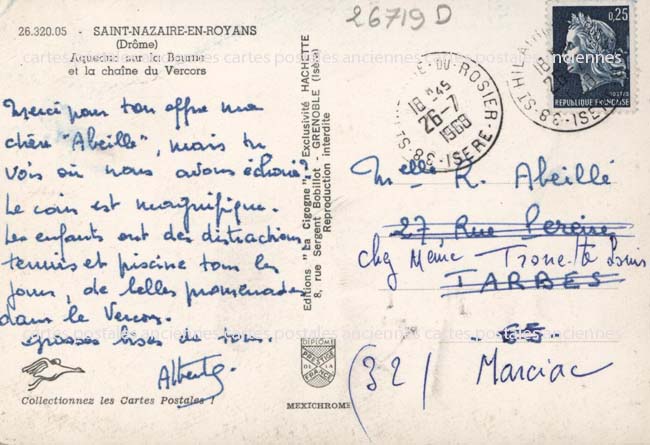 26719 D
26.320.05 - SAINT-NAZAIRE-EN-ROYANS
(Drôme)
Aqueduc sur la Bourne
et la chaîne du Vercors
Merci pour ton offre ma
chère "Abeille", mais tu
vois où nous avons échoué?
Le coin est magnifique.
Les enfants ont des distractions
tennis et piscine tous les
jours, de belles promenades
dans le Vercors.
grosses bises de tous.
Albert
Collectionnez les Cartes Postales !
Editions "La Cigogne" - Exclusivité HACHETTE
8, rue Sergent Bobillot - GRENOBLE (Isère)
Reproduction interdite
DIPLOME
PRESTIGE
DE LA
FRANCE
MEXICHROME
0,25
POSTES
REPUBLIQUE FRANÇAISE
ST HILAIRE-DU-ROSIER
18 H 45
26-7
1968
38-ISERE
18 H
26
38-ST HILAIRE
ISERE
Melle R. Abeillé
27 Rue Pereire
chez Même
TARBES
65
(32) Marciac
cartes postales anciennes cartes postales anciennes cartes postales anciennes
cartes postales anciennes cartes postales anciennes cartes postales anciennes